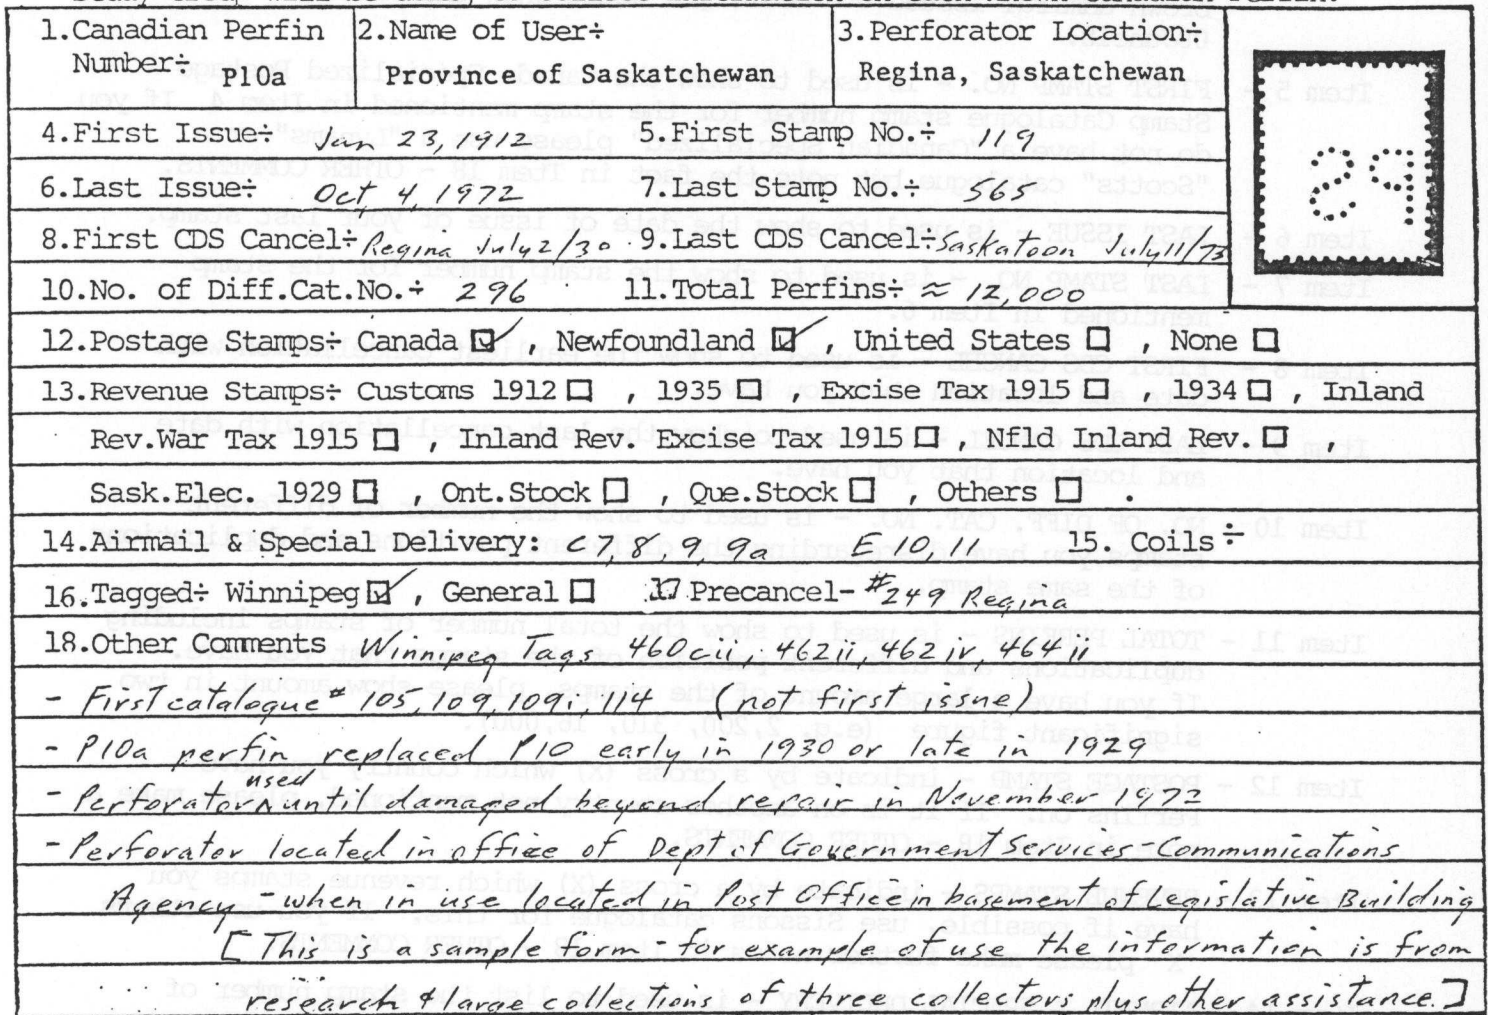 1.Canadian Perfin Number÷ P10a
2.Name of User÷ Province of Saskatchewan
3.Perforator Location÷ Regina, Saskatchewan
4.First Issue÷ Jan 23, 1912 5.First Stamp No.÷ 119
6.Last Issue÷ Oct, 4, 1972 7.Last Stamp No.÷ 565
8.First CDS Cancel÷ Regina July 2/30 9.Last CDS Cancel÷ Saskatoon July 11/73
10.No. of Diff.Cat.No.÷ 296 11.Total Perfins÷ ≈ 12,000
12.Postage Stamps÷ Canada ☑, Newfoundland ☑, United States ☐, None ☐
13.Revenue Stamps÷ Customs 1912 ☐, 1935 ☐, Excise Tax 1915 ☐, 1934 ☐, Inland
Rev.War Tax 1915 ☐, Inland Rev. Excise Tax 1915 ☐, Nfld Inland Rev. ☐,
Sask.Elec. 1929 ☐, Ont.Stock ☐, Que.Stock ☐, Others ☐.
14.Airmail & Special Delivery: C7,8,9,9a E10,11 15. Coils÷
16.Tagged÷ Winnipeg ☑, General ☐ 17 Precancel- #249 Regina
18.Other Comments Winnipeg Tags 460cii, 462ii, 462iv, 464ii
- First catalogue # 105, 109, 109i, 114 (not first issue)
- P10a perfin replaced P10 early in 1930 or late in 1929
- Perforator used until damaged beyond repair in November 1972
- Perforator located in office of Dept of Government Services-Communications
Agency - when in use located in Post Office in basement of Legislative Building
[This is a sample form - for example of use the information is from
research & large collections of three collectors plus other assistance.]